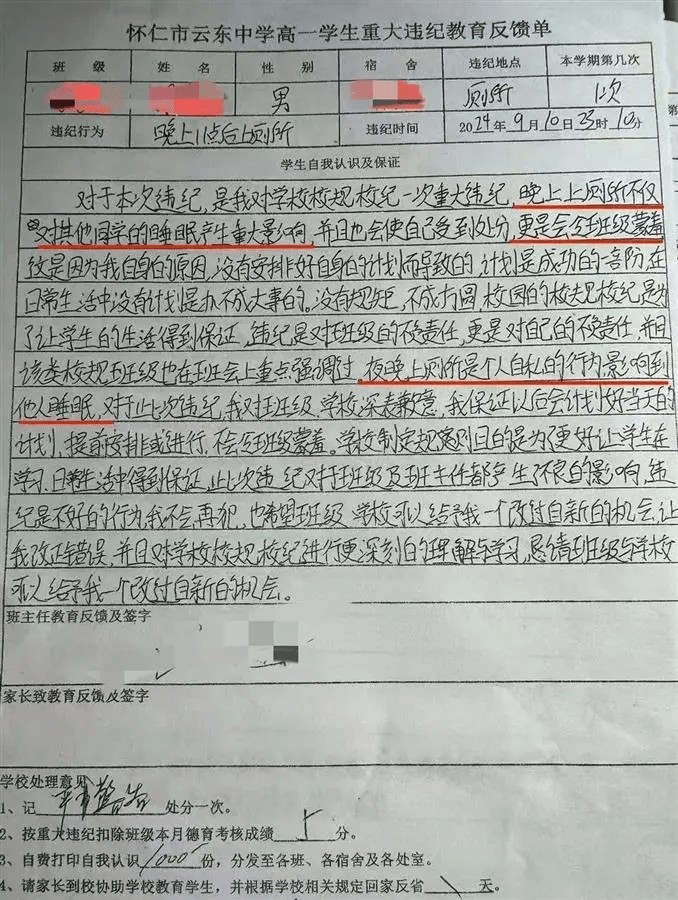 怀仁市云东中学高一学生重大违纪教育反馈单
班 级 姓 名 性 别 宿 舍 违纪地点 本学期第几次
男 厕所 1次
违纪行为 晚上11点后上厕所 违纪时间 2024年9月10日23时10分
学生自我认识及保证
对于本次违纪,是我对学校校规校纪一次重大违纪,晚上上厕所不仅
对其他同学的睡眠产生重大影响,并且也会使自己受到处分,更是会令班级蒙羞
这是因为我自身的原因,没有安排好自身的计划而导致的,计划是成功的一部分,在
日常生活中没有计划是办不成大事的。没有规矩,不成方圆,校园的校规校纪是为
了让学生的生活得到保证,违纪是对班级的不负责任,更是对自己的不负责任,并且
该类校规班级也在班会上重点强调过,夜晚上厕所是个人自私的行为影响到
他人睡眠,对于此次违纪,我对班级、学校深表歉意,我保证以后会计划好当天的
计划,提前安排或进行,不会令班级蒙羞。学校制定规章的目的是为了更好让学生在
学习、日常生活中得到保证,此次违纪对于班级及班主任都产生了不良的影响,违
纪是不好的行为我不会再犯,也希望班级、学校可以给予我一个改过自新的机会,让
我改正错误,并且对学校校规、校纪进行更深刻的理解与学习,恳请班级与学校
可以给予我一个改过自新的机会。
班主任教育反馈及签字
家长致教育反馈及签字
学校处理意见
1、记 严重警告 处分一次。
2、按重大违纪扣除班级本月德育考核成绩 分。
3、自费打印自我认识 1000 份,分发至各班、各宿舍及各处室。
4、请家长到校协助学校教育学生,并根据学校相关规定回家反省 \ 天。